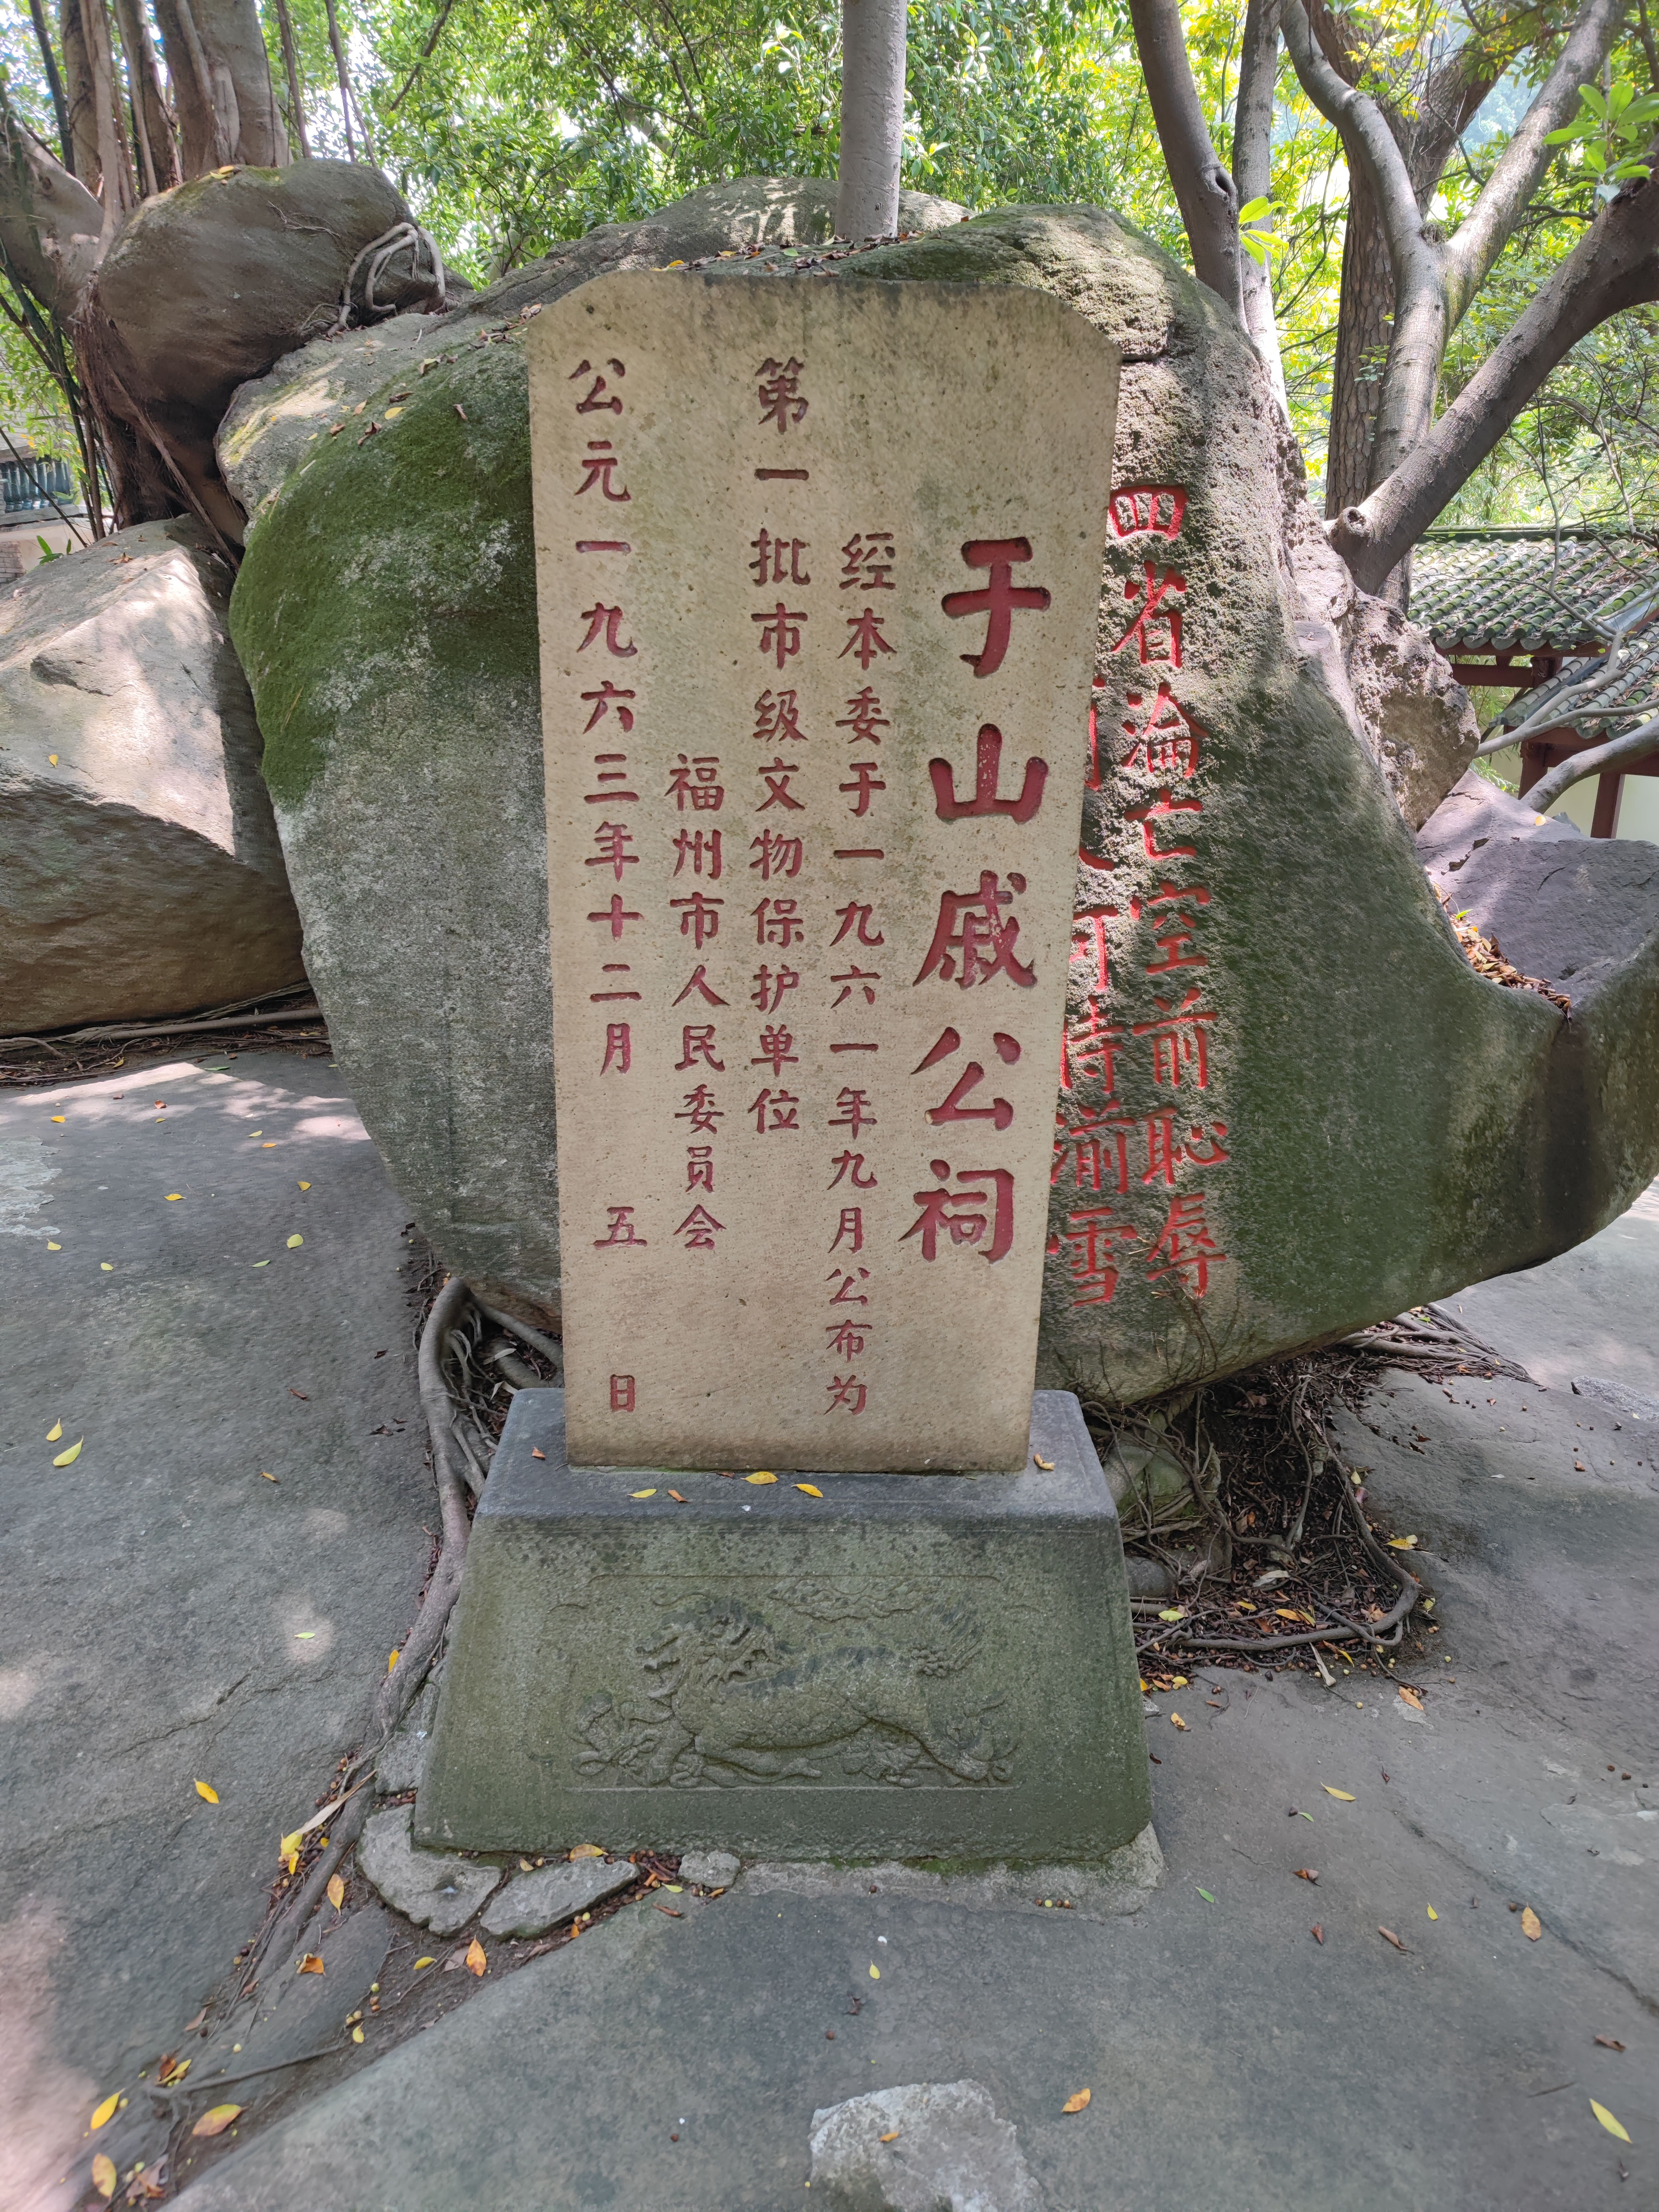 四省淪亡空前恥辱
湔雪
于山戚公祠
经本委于一九六一年九月公布为
第一批市级文物保护单位
福州市人民委员会
公元一九六三年十二月五日